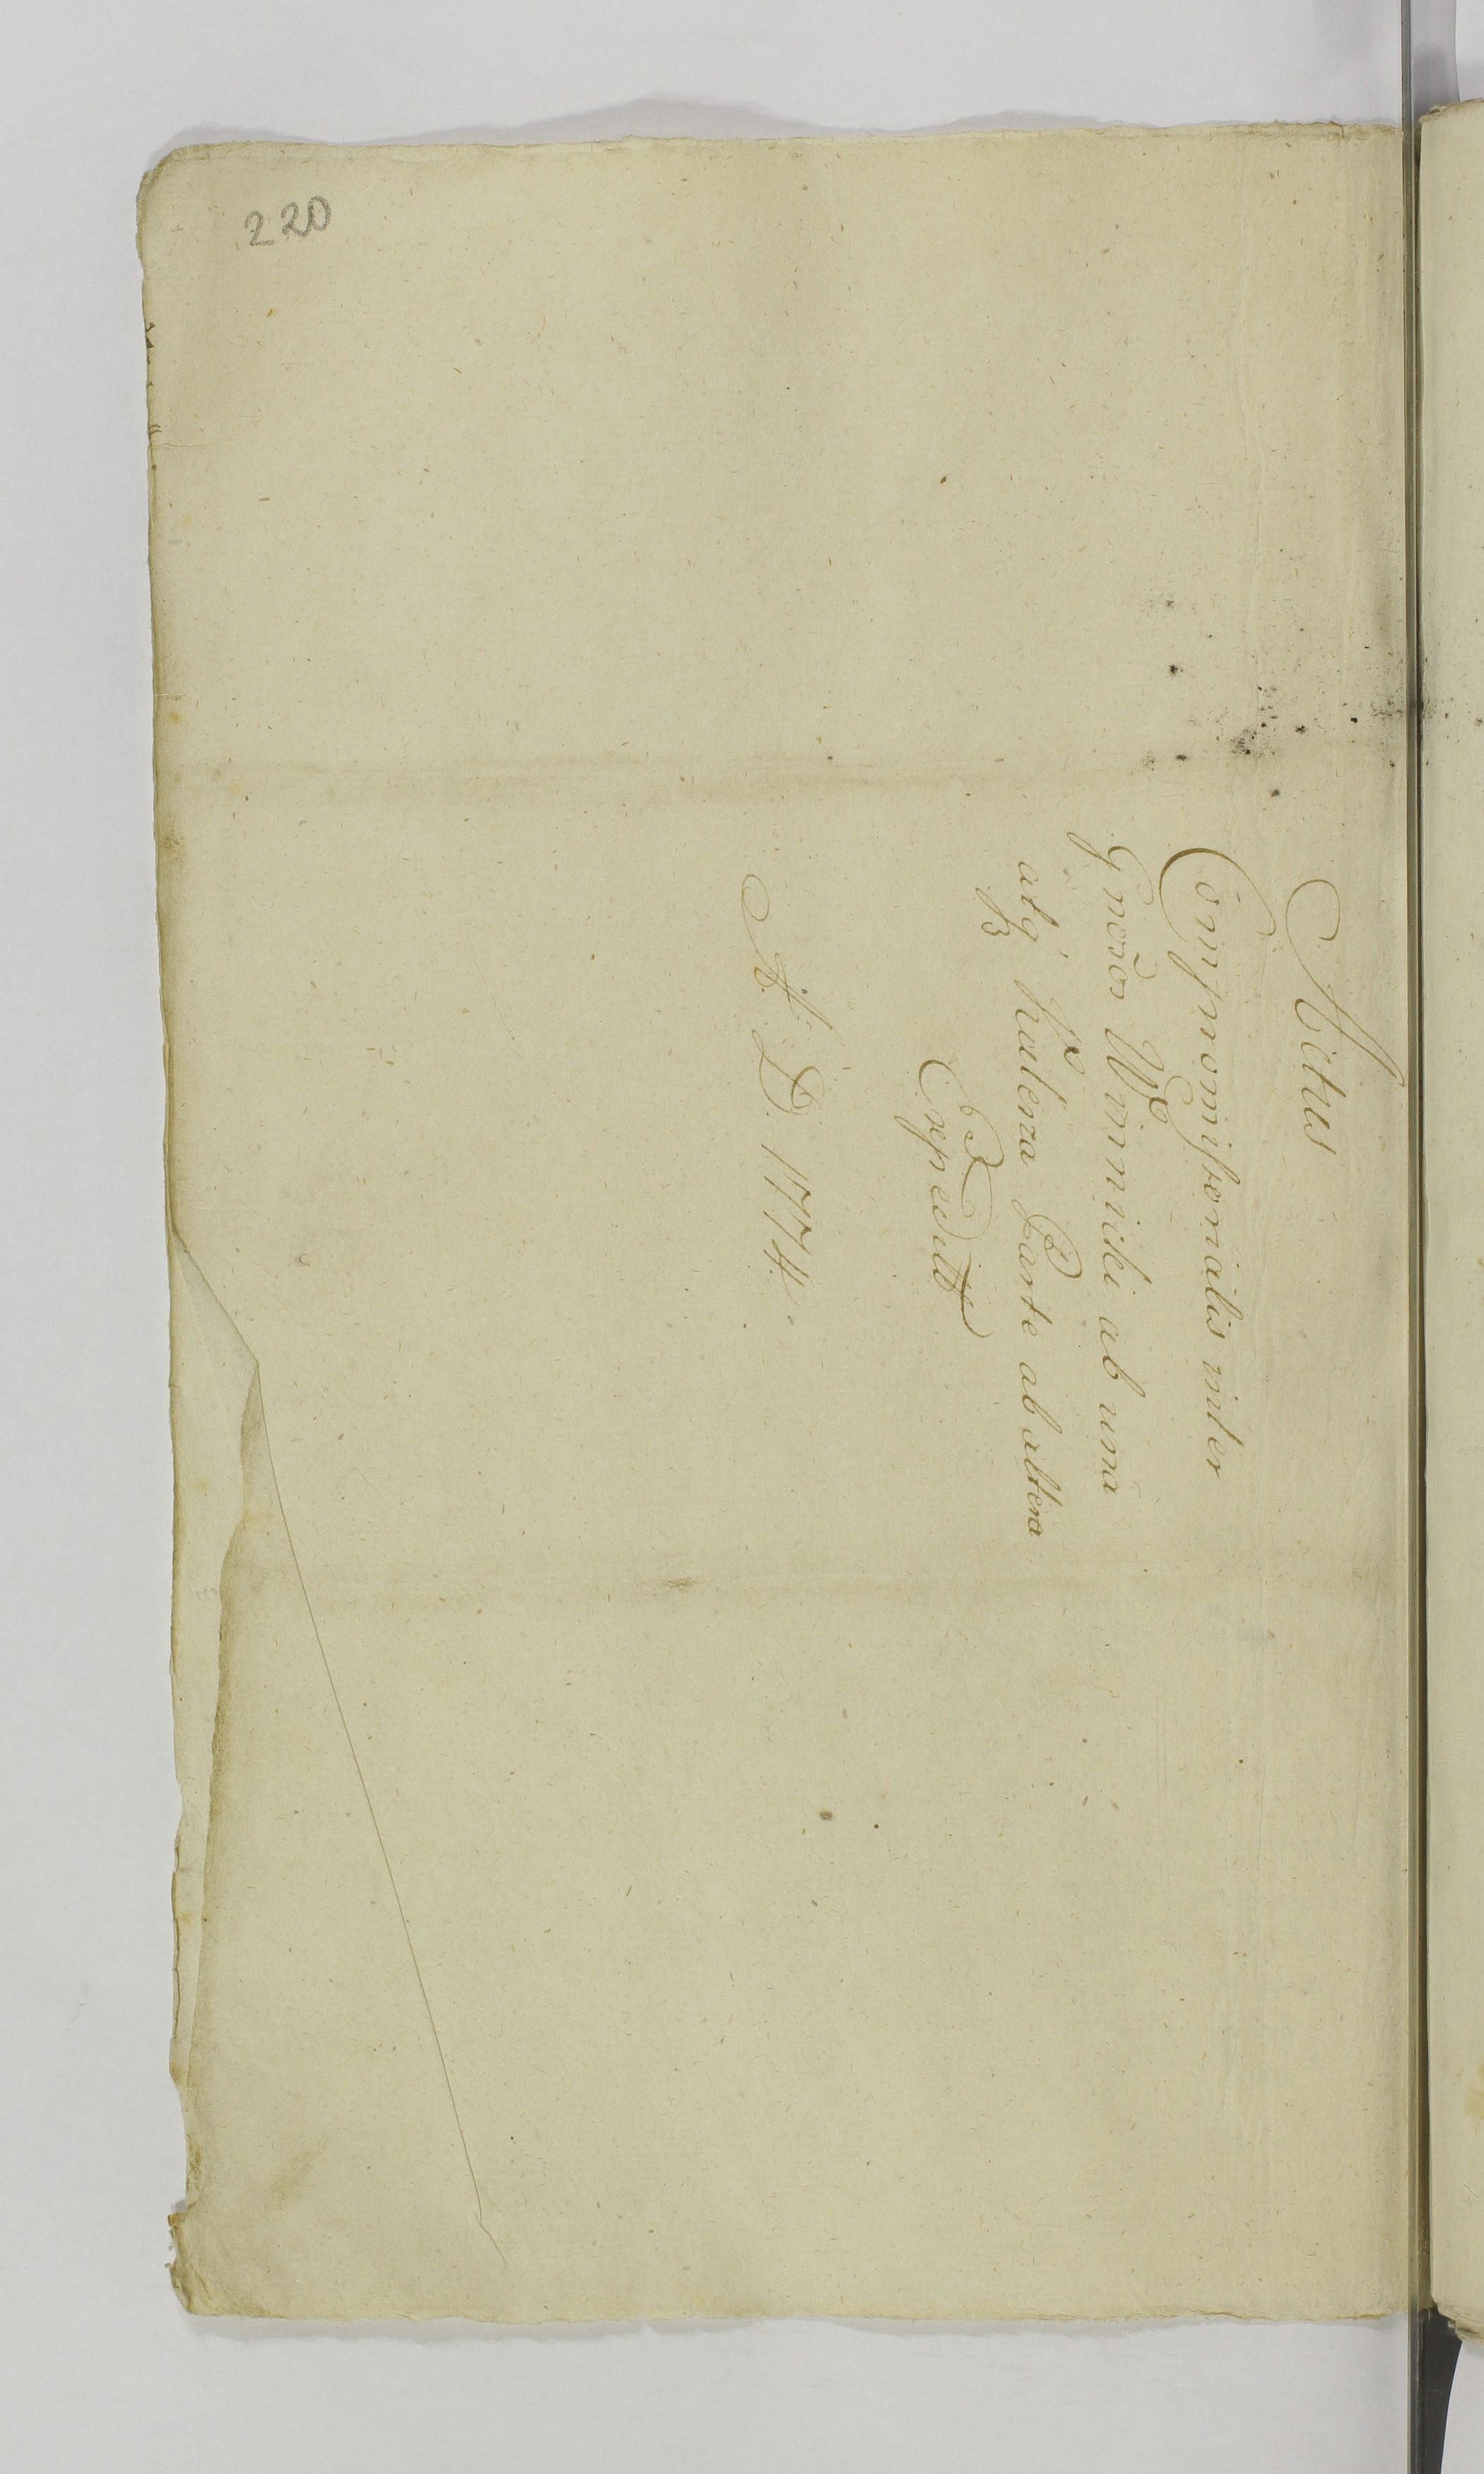 220
Actus
Compromissorialis inter
Gnõsos Winnicki ab una
atq́ꝫ Kulesza Parte ab altera
Expeditus
A. D. 1774.